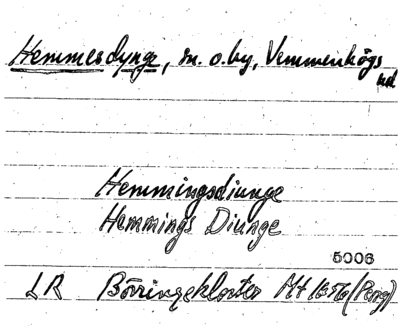 Hemmesdynge, sn. o. by, Vemmenhögs
hd
Hemmingsdiunge
Hemmings Diunge
5006
LR Börringekloster Mt 1656 (Peng)